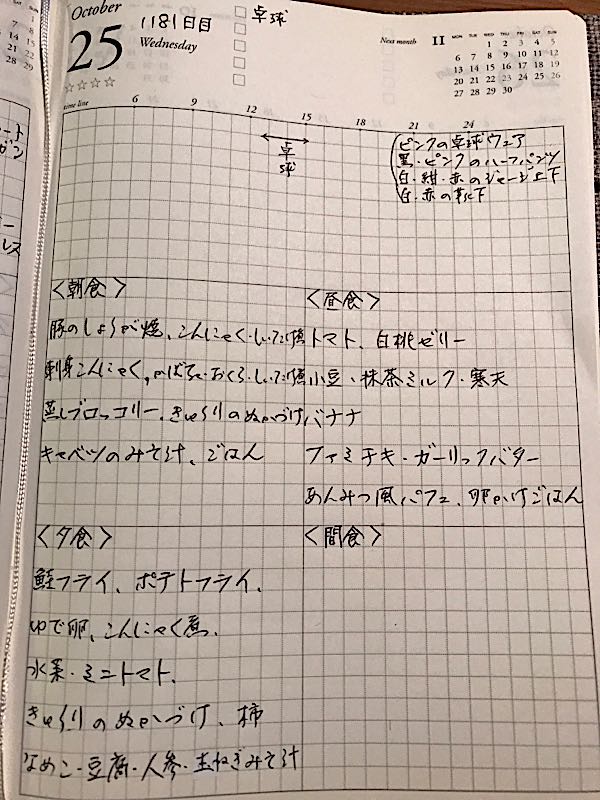 October
25
Wednesday
1181日目
卓球
Next month 11
MON TUE WED THU FRI SAT SUN
1 2 3 4 5
6 7 8 9 10 11 12
13 14 15 16 17 18 19
20 21 22 23 24 25 26
27 28 29 30
time line 6 9 12 15 18 21 24
卓球
ピンクの卓球ウェア
黒・ピンクのハーフパンツ
白・紺・赤のジャージ上下
白・赤の靴下
<朝食>
豚のしょうが焼、こんにゃく・しいたけ
刺身こんにゃく、かぼちゃ・おくら・しいたけ
蒸しブロッコリー、きゅうりのぬかづけ
キャベツのみそ汁、ごはん
<昼食>
トマト、白桃ゼリー
小豆・抹茶ミルク・寒天
バナナ
ファミチキ・ガーリックバター
あんみつ風パフェ、卵かけごはん
<夕食>
鮭フライ、ポテトフライ、
ゆで卵、こんにゃく煮、
水菜・ミニトマト、
きゅうりのぬかづけ、柿
なめこ・豆腐・人参・玉ねぎみそ汁
<間食>